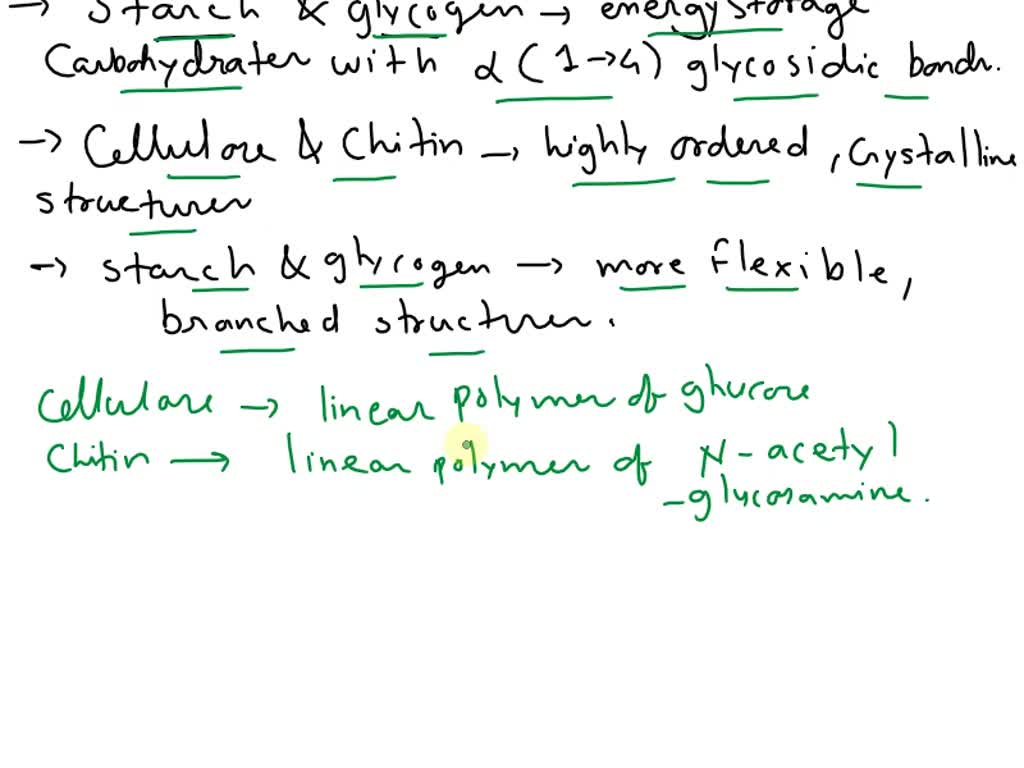 → Starch & glycogen → energy storage
Carbohydrates with α (1→4) glycosidic bonds.
→ Cellulose & Chitin → highly ordered, crystalline
structures
→ starch & glycogen → more flexible,
branched structures.
Cellulose → linear polymer of glucose
Chitin → linear polymer of N-acetyl
-glycosamine.